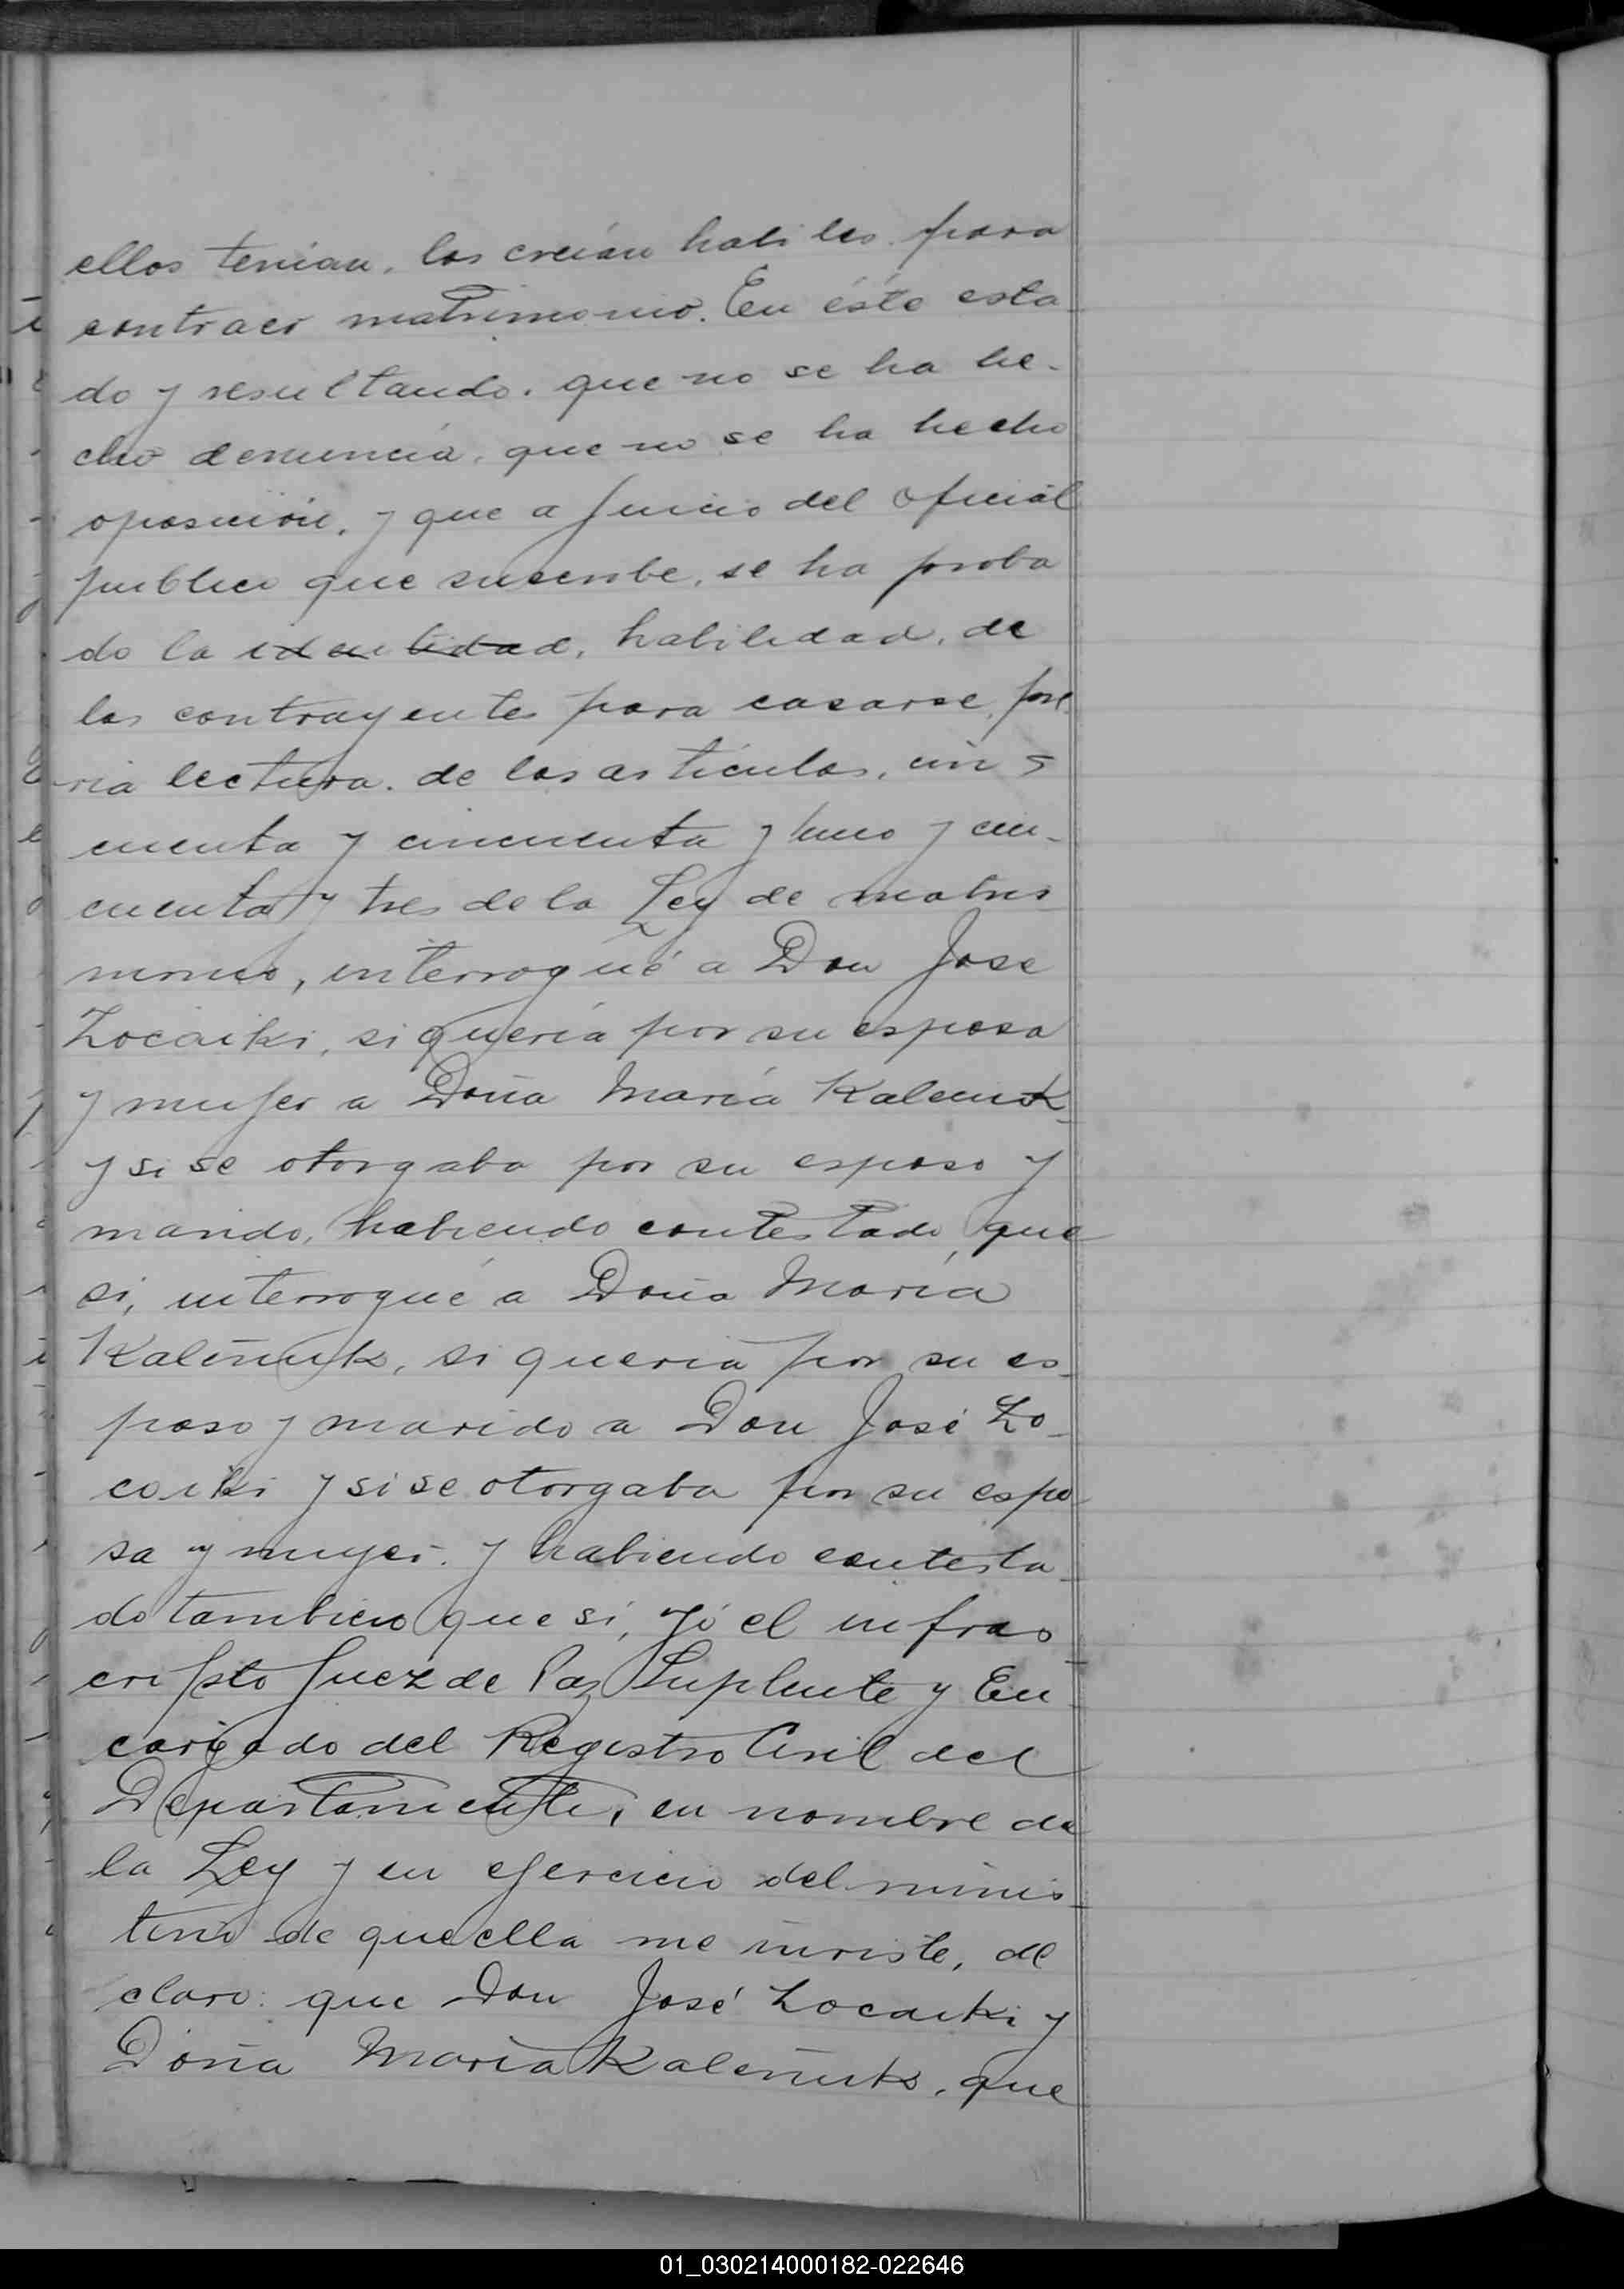 ellos tenían, los creían habiles para
contraer matrimonio. En éste esta
do y resultando. que no se ha he-
cho denuncia, que no se ha hecho
oposición, y que a juicio del oficial
publico que suscribe, se ha proba
do la identidad, habilidad, de
los contrayentes para casarse, pre
via lectura. de los articulos, cin
cuenta y cincuenta y uno y cin-
cuenta y tres de la Ley de matri
monio, interrogué a Don Jose
Zocaiki, si quería por su esposa
y mujer a Doña María Kaleniuk
y si se otorgaba por su esposo y
marido, habiendo contestado, que
si, interrogué a Doña María
Kaleniuk, si queria por su es
poso y marido a Don José Zo-
caiki y si se otorgaba por su espo
sa y mujer. y habiendo contesta
do tambien que si, Yó el infras
cripto Juez de Paz Suplente y En
cargado del Registro Civil del
Departamento, en nombre de
la Ley y en ejercicio del minis
terio de que ella me inviste, de
claro: que Don José Zocaiki y
Doña María Kaleniuk, que
01_030214000182-022646